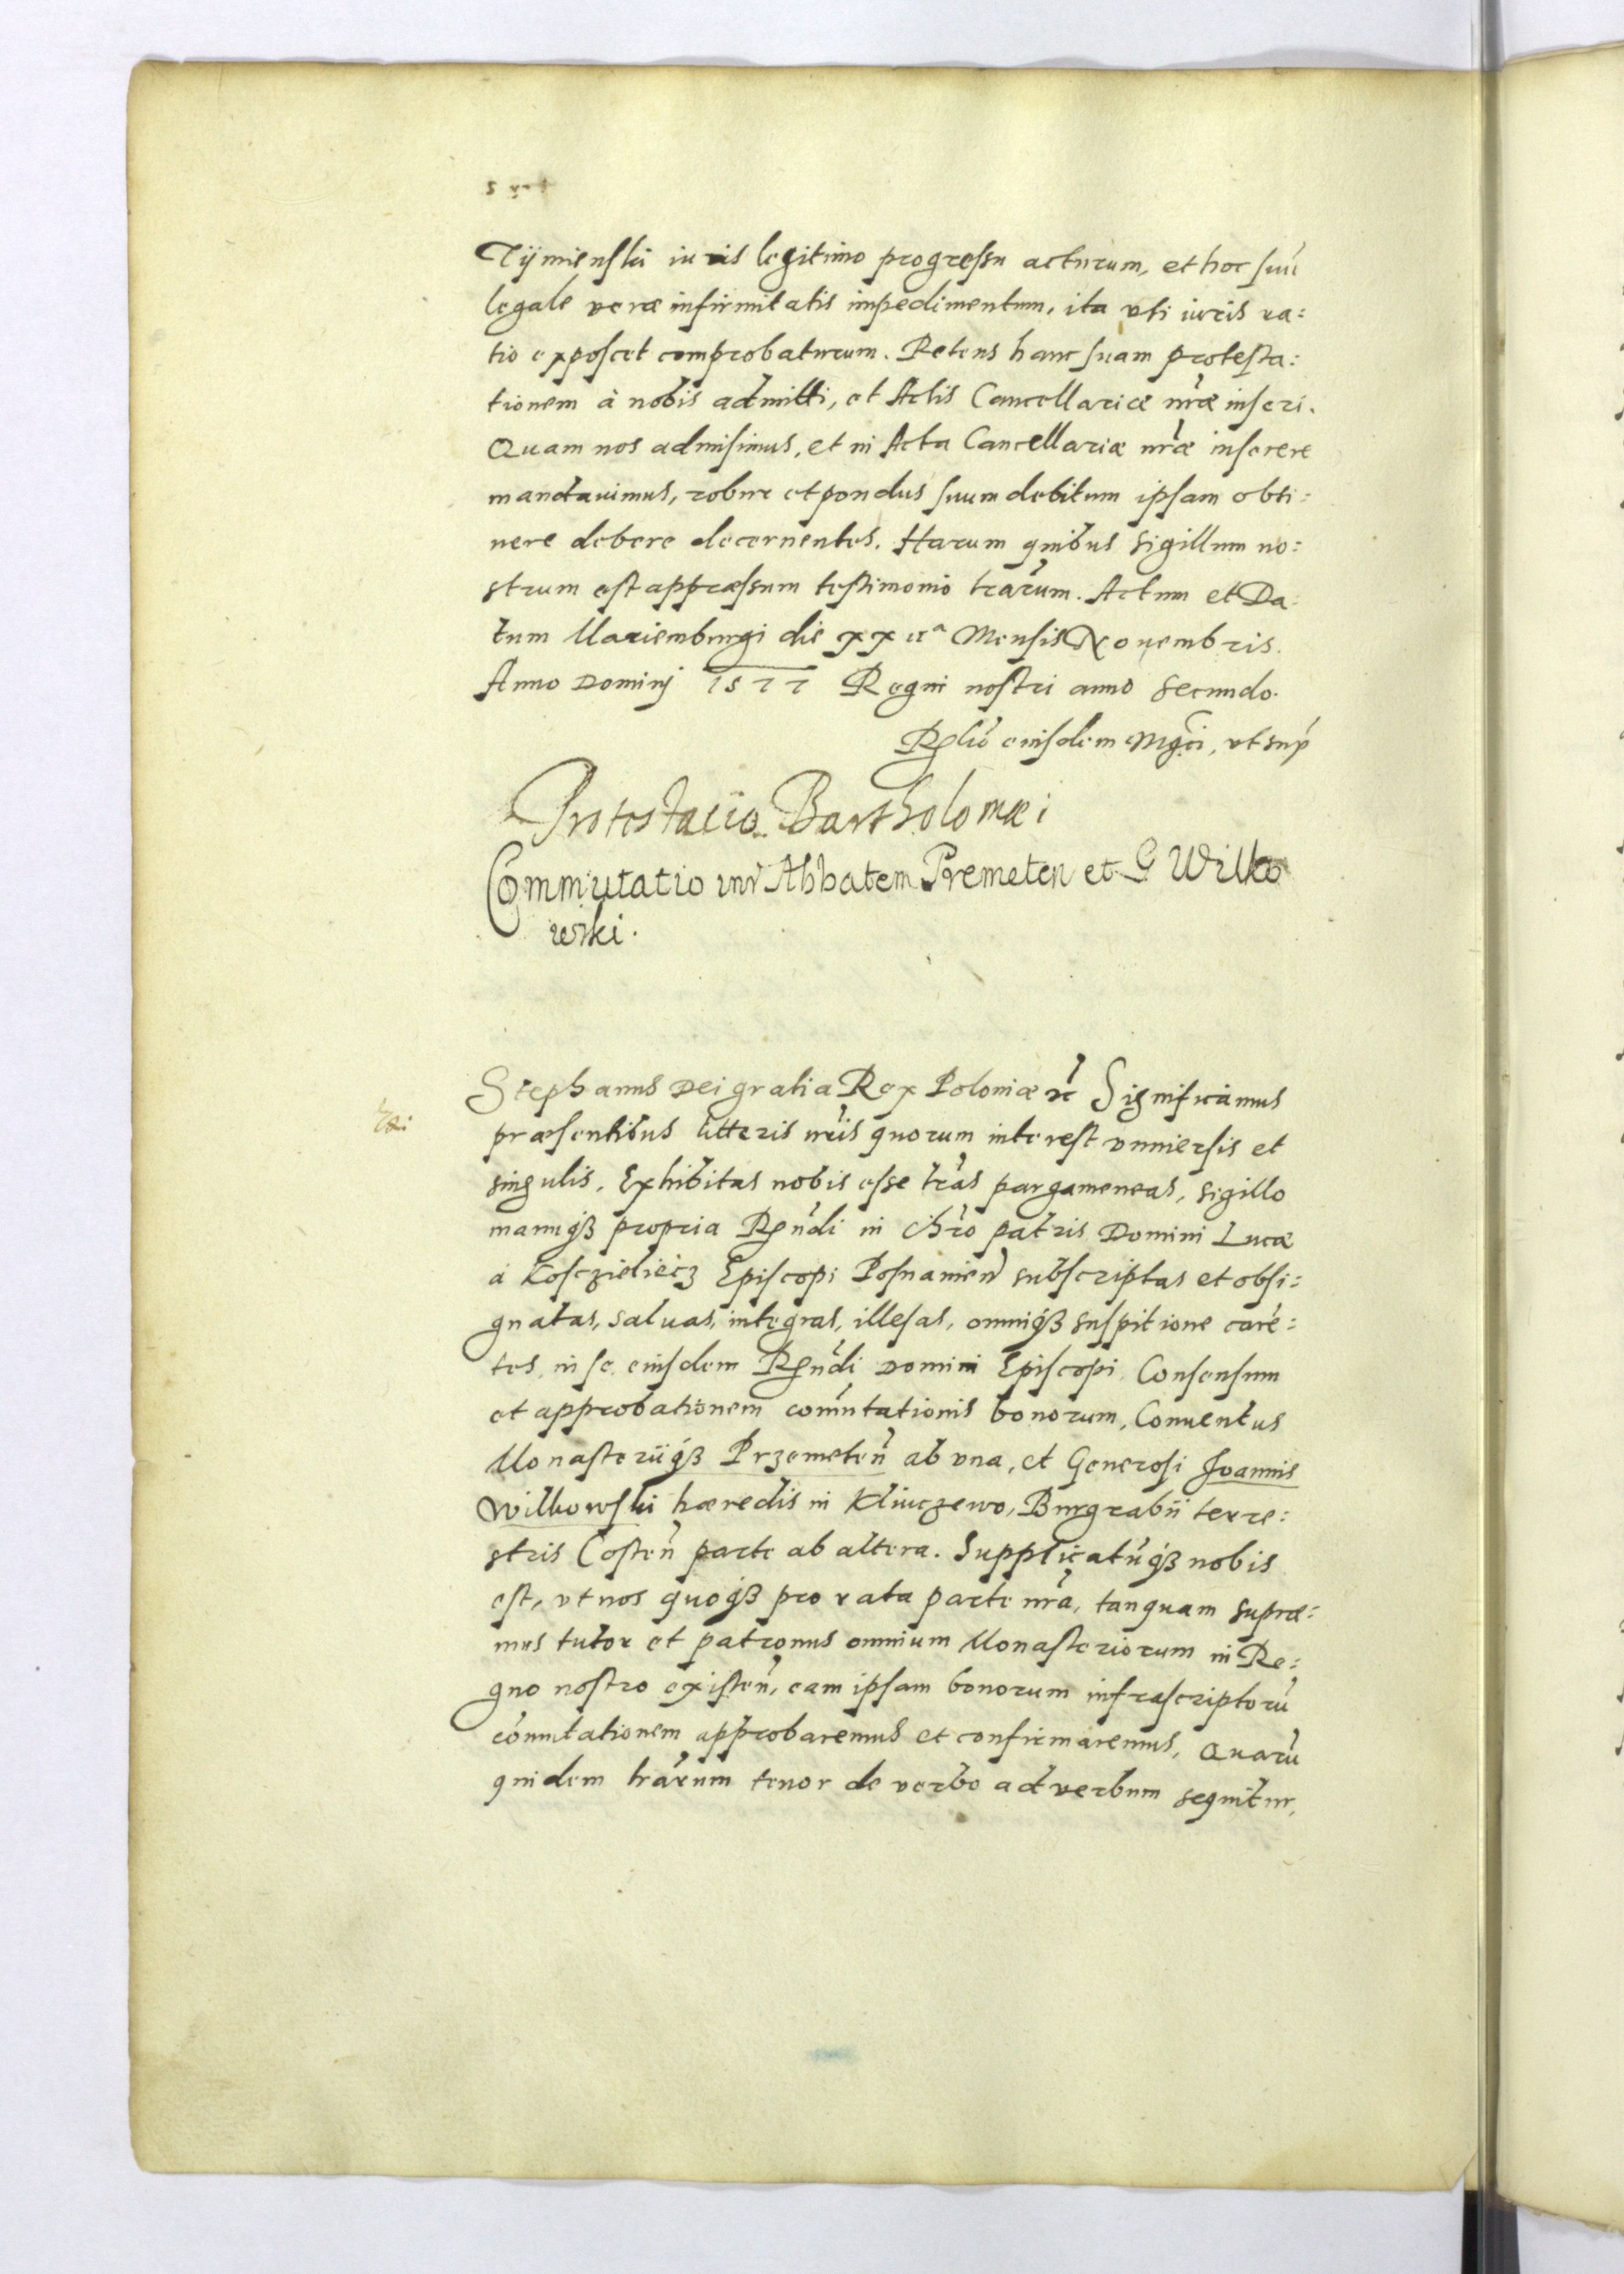 Tijmienski iuris legitimo progressu acturum, et hoc suū
legale veræ infirmitatis impedimentum, ita vti iuris ra:
tio exposcet comprobaturum. Petens hanc suam protesta:
tionem à nobis admitti, et Actis Cancellariæ nrāe inseri.
Quam nos admisimus, et in Acta Cancellariæ nrāe inserere
mandauimus, robur et pondus suum debitum ipsam obti:
nere debere decernentes. Harum quibus sigillum no:
strum est appræssum testimonio lrārum. Actum et Da:
tum Mariemburgi die Mensis Nouembris.
Anno Dominj 1577 Regni nostri anno secundo.
Relio eiusdem Mgci, vt sup
Protestacio Bartholomæi
Commutatio intr Abbatem Premeten et G Wilko
wski.
Stephanus Dei gratia Rex Poloniæ etc Significamus
præsentibus litteris nrīs quorum interest vniuersis et
singulis. Exhibitas nobis esse lrās pargameneas, sigillo
manuq3 propria Rendi in Chrō patris Domini Lucæ
á Kosczieliecz Episcopi Posnanien subscriptas et obsi:
gnatas, saluas, integras, illesas, omniq3 suspitione carē:
tes, in se eiusdem Rendi Domini Episcopi Consensum
et approbationem com̄utationis bonorum, Conuentus
Monasteriiq3 Przemeten̄ ab vna, et Generosi Joannis
Wilkowski hæredis in Kluczewo, Burgrabii terre:
stris Costen̄ parte ab altera. Supplicatūq3 nobis
est, vt nos quoq3 pro rata parte nrā, tanquam supræ:
mus tutor et patronus omnium Monasteriorum in Re:
gno nostro existen̄, eam ipsam bonorum infrascriptorū
com̄utationem approbaremus et confirmaremus, Quarū
quidem lrārum tenor de verbo ad verbum sequitur,